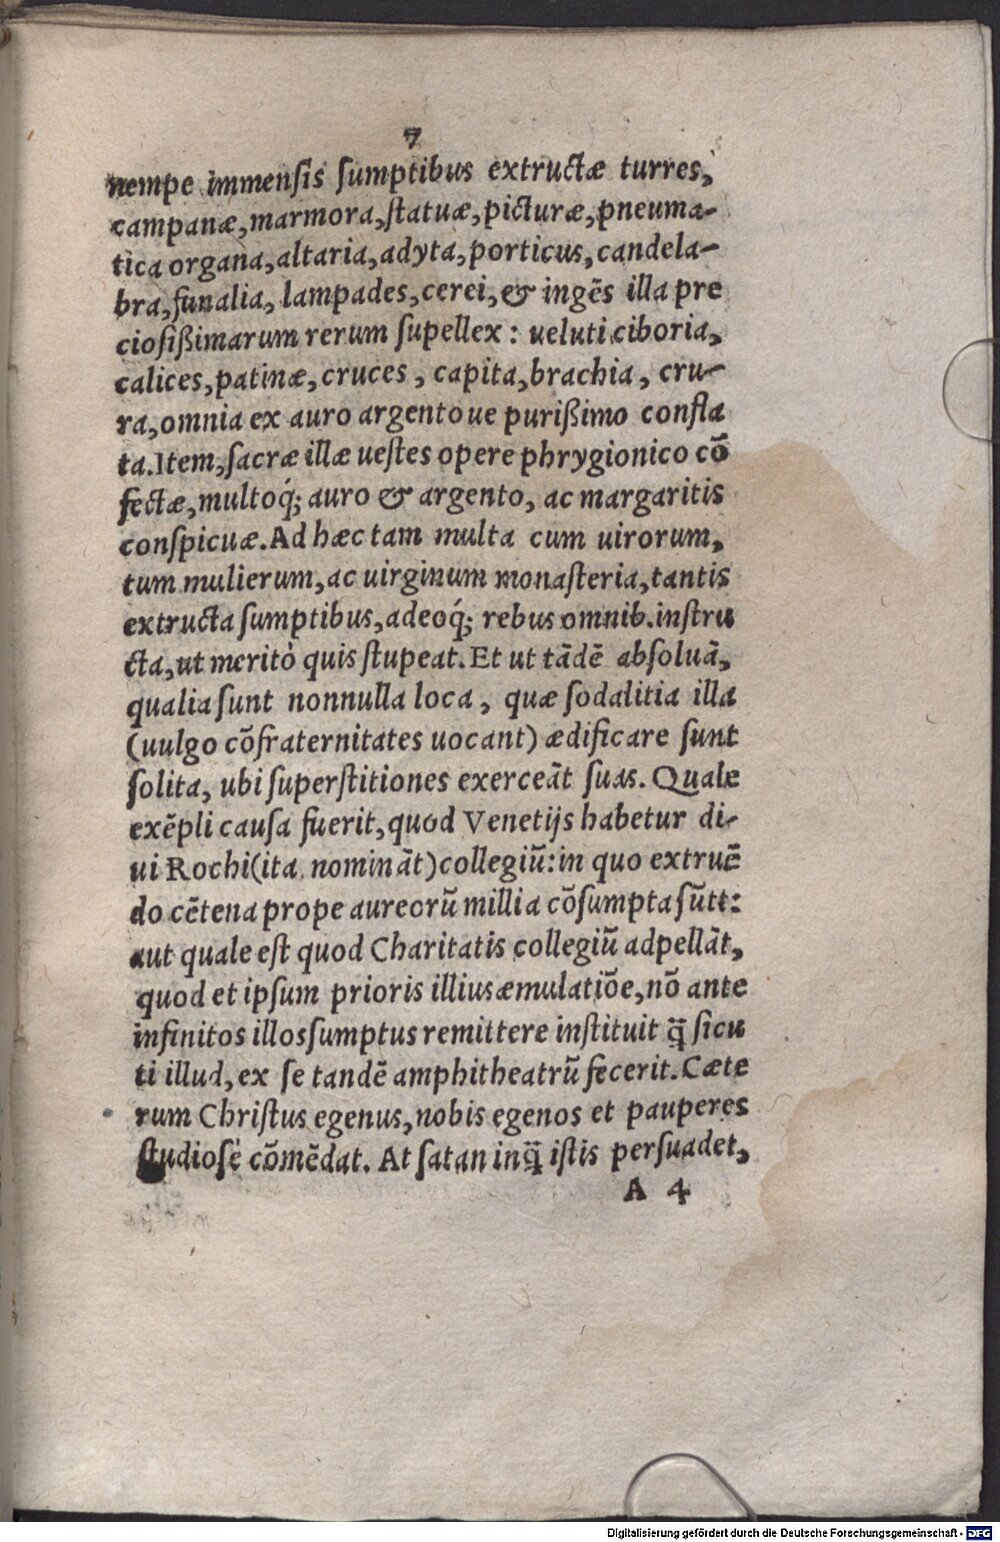 7
nempe immensis sumptibus extructæ turres,
campanæ, marmora, statuæ, picturæ, pneuma-
tica organa, altaria, adyta, porticus, candela-
bra, funalia, lampades, cerei, & ingēs illa pre
ciosißimarum rerum supellex: ueluti ciboria,
calices, patinæ, cruces, capita, brachia, cru-
ra, omnia ex auro argento ue purißimo confla
ta. Item, sacræ illæ uestes opere phrygionico cō
fectæ, multoq́; auro & argento, ac margaritis
conspicuæ. Ad hæc tam multa cum uirorum,
tum mulierum, ac uirginum monasteria, tantis
extructa sumptibus, adeoq́; rebus omnib. instru
cta, ut meritò quis stupeat. Et ut tādē absoluā,
qualia sunt nonnulla loca, quæ sodalitia illa
(uulgo cōfraternitates uocant) ædificare sunt
solita, ubi superstitiones exerceāt suas. Quale
exēpli causa fuerit, quod Venetijs habetur di-
ui Rochi (ita nomināt) collegiū: in quo extruē
do cētena prope aureorū millia cōsumpta sūtt:
aut quale est quod Charitatis collegiū adpellāt,
quod et ipsum prioris illius æmulatiōe, nō ante
infinitos illos sumptus remittere instituit q̄̃ sicu
ti illud, ex se tandē amphitheatrū fecerit. Cæte
rum Christus egenus, nobis egenos et pauperes
studiosè cōmēdat. At satan inq̄̃ istis persuadet,
A 4
Digitalisierung gefördert durch die Deutsche Forschungsgemeinschaft - DFG